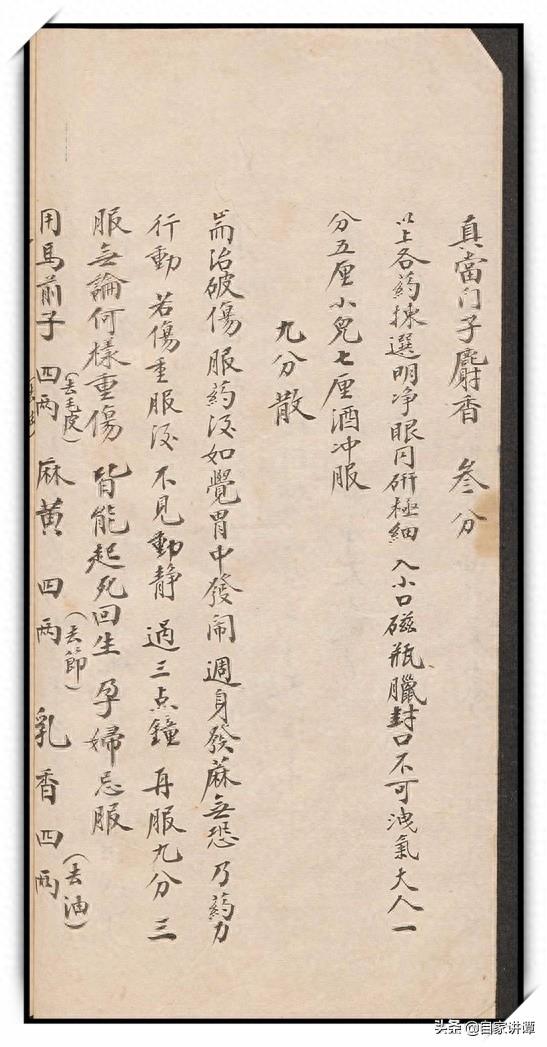 真當门子麝香 叁分
以上各药揀選明净眼同研極細入小口磁瓶臘封口不可洩氣大人一
分五厘小兒七厘酒冲服
九分散
耑治破傷服药後如覺胃中發闹週身發蔴無恐乃药力
行動若傷重服後不見動静過三点鐘再服九分三
服無論何樣重傷皆能起死回生孕婦忌服
用馬前子四两(去毛皮)麻黄四两(去節)乳香四两(去油)
头条@自家讲谭